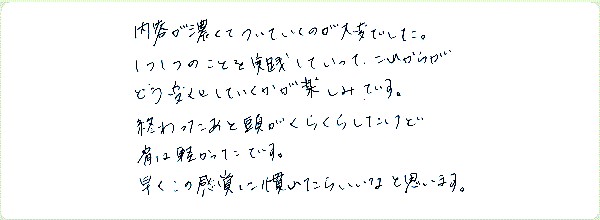 内容が濃くてついていくのが大変でした。
1つ1つのことを実践していって、これからが
どう変化していくかが楽しみです。
終わったあと頭がくらくらしたけど
肩は軽かったです。
早くこの感覚に慣れたらいいなと思います。